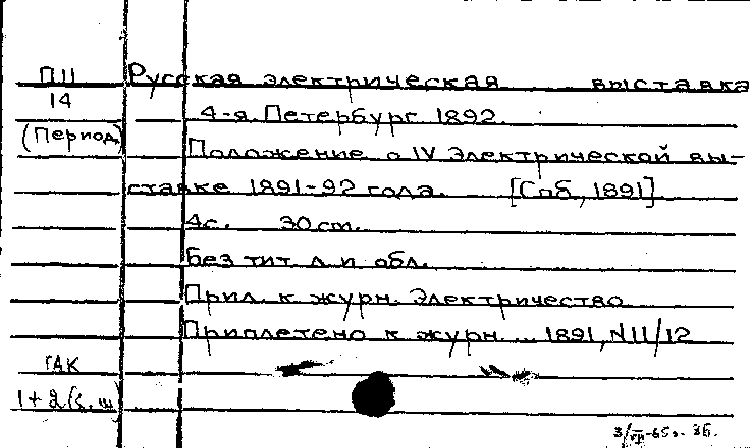 П11 Русская электрическая выставка
14 4-я. Петербург 1892.
(Период) Положение о IV Электрической вы-
ставке 1891-92 года. [Спб, 1891]
4с. 30 cm.
Без тит. л. и обл.
Прил. к журн. Электричество
Приплетено к журн ... 1891, N11/12
ГАК
1+2